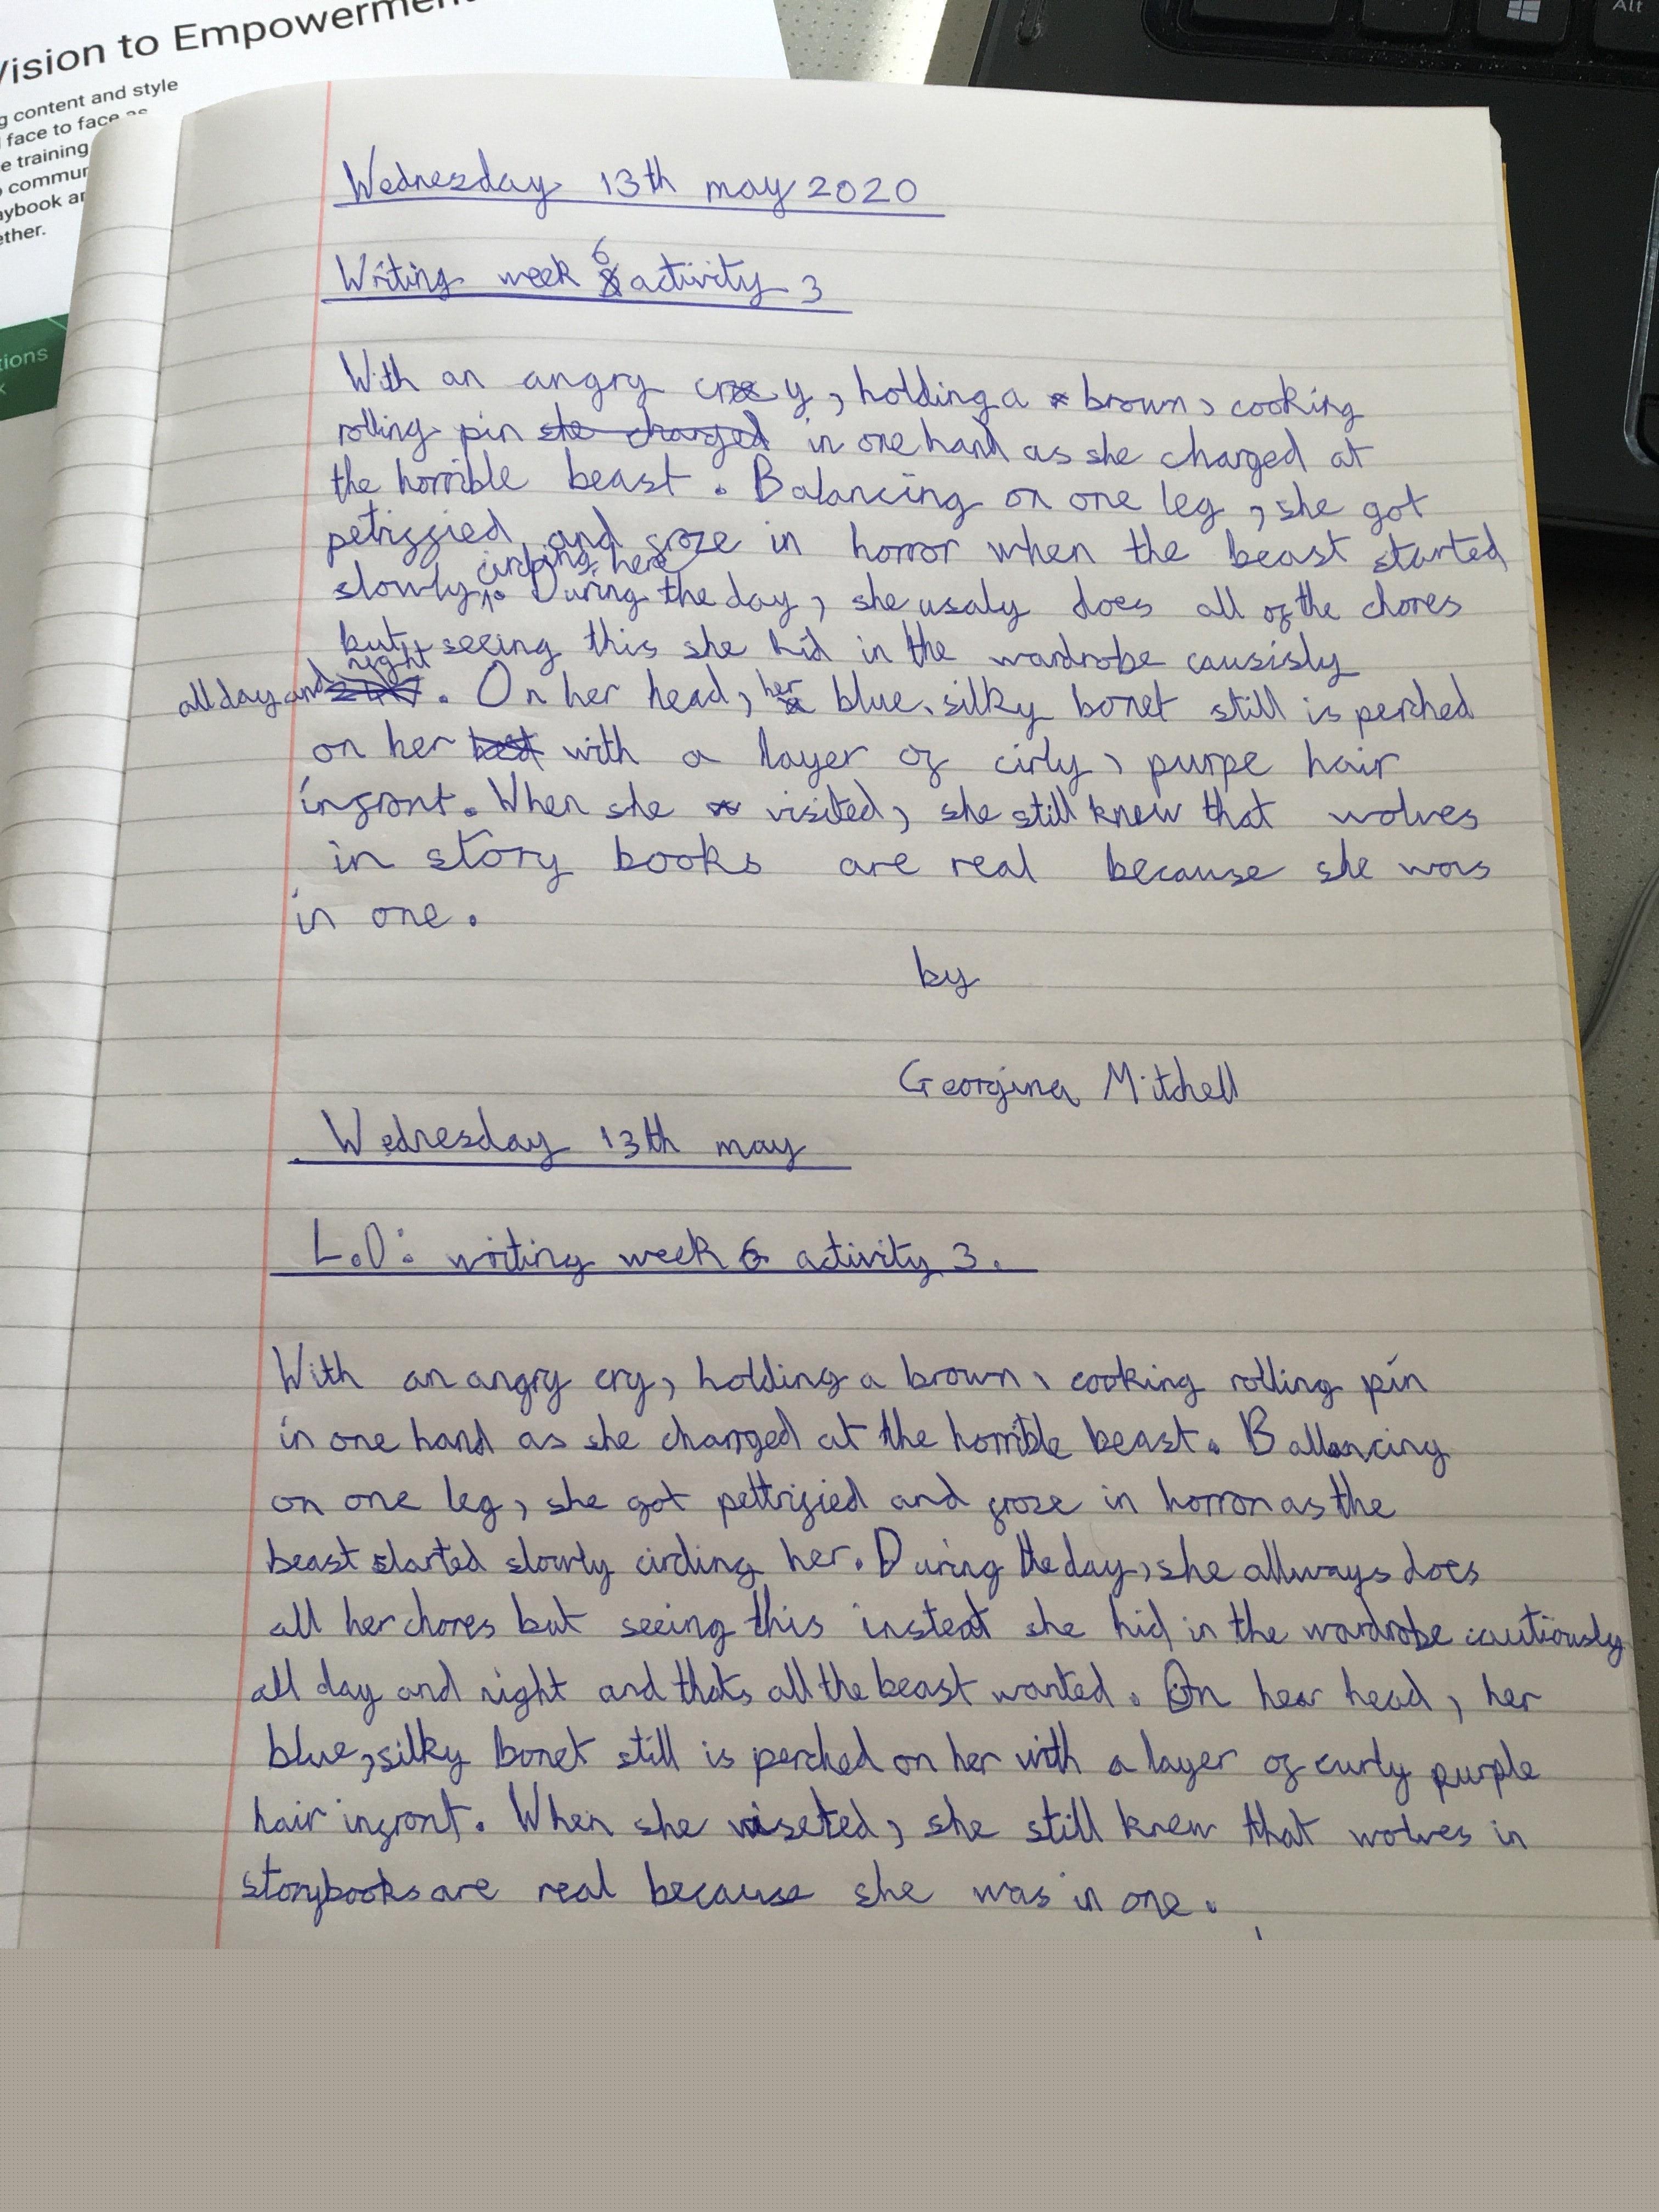 Vision to Empowerment
g content and style
face to face as
e training
commun
aybook an
ether.
tions
k
Alt
Wednesday 13th may 2020
6
Writing week activity 3
With an angry cry, holding a brown, cooking
rolling pin she charged in one hand as she charged at
the horrible beast. Balancing on one leg, she got
petriffied and froze in horror when the beast started
circling here
slowly. During the day, she usaly does all of the chores
but seeing this she hid in the wardrobe causisly
all day and night. On her head, her blue, silky bonet still is perched
on her with a layer of cirly, purpe hair
infront. When she visited, she still knew that wolves
in story books are real because she was
in one.
by
Georgina Mitchell
Wednesday 13th may
L.O: writing week 6 activity 3.
With an angry cry, holding a brown, cooking rolling pin
in one hand as she charrged at the horrible beast. Ballancing
on one leg, she got pettrified and froze in horror as the
beast started slowly circling her. During the day, she allways does
all her chores but seeing this instead she hid in the wardrobe cautiously
all day and night and thats all the beast wanted. On hear head, her
blue, silky bonet still is perched on her with a layer of curly purple
hair infront. When she viseted, she still knew that wolves in
storybooks are real because she was in one.